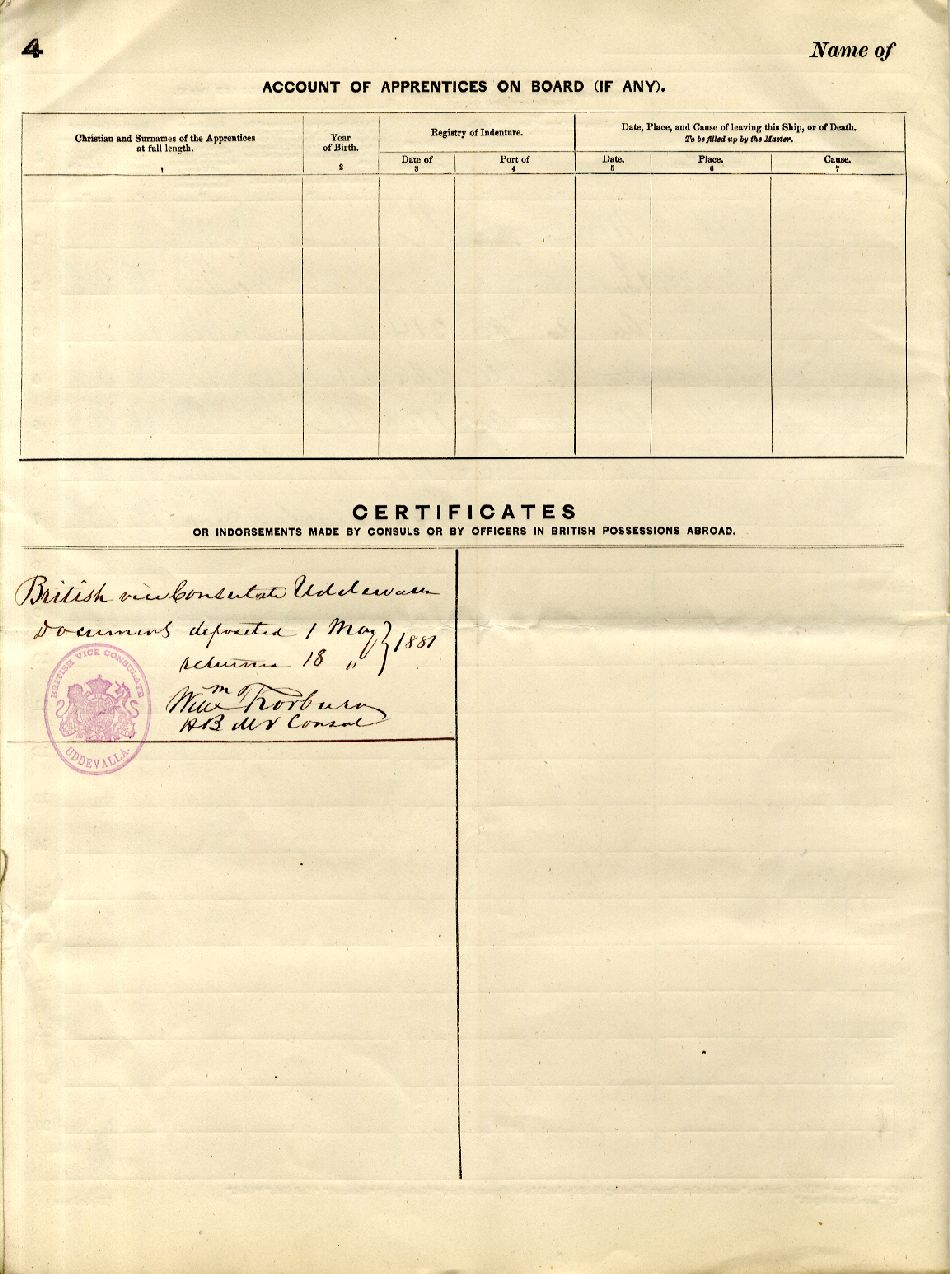 4
Name of
ACCOUNT OF APPRENTICES ON BOARD (IF ANY).
Christian and Surnames of the Apprentices
at full length.
1
Year
of Birth.
2
Registry of Indenture.
Date of
3
Port of
4
Date, Place, and Cause of leaving this Ship, or of Death.
To be filled up by the Master.
Date.
5
Place.
6
Cause.
7
CERTIFICATES
OR INDORSEMENTS MADE BY CONSULS OR BY OFFICERS IN BRITISH POSSESSIONS ABROAD.
British vice Consulate Uddewalla
Document deposited 1 May } 1881
returned 18 "
Willm Thorburn
HBM V Consul
BRITISH VICE CONSULATE
UDDEVALLA